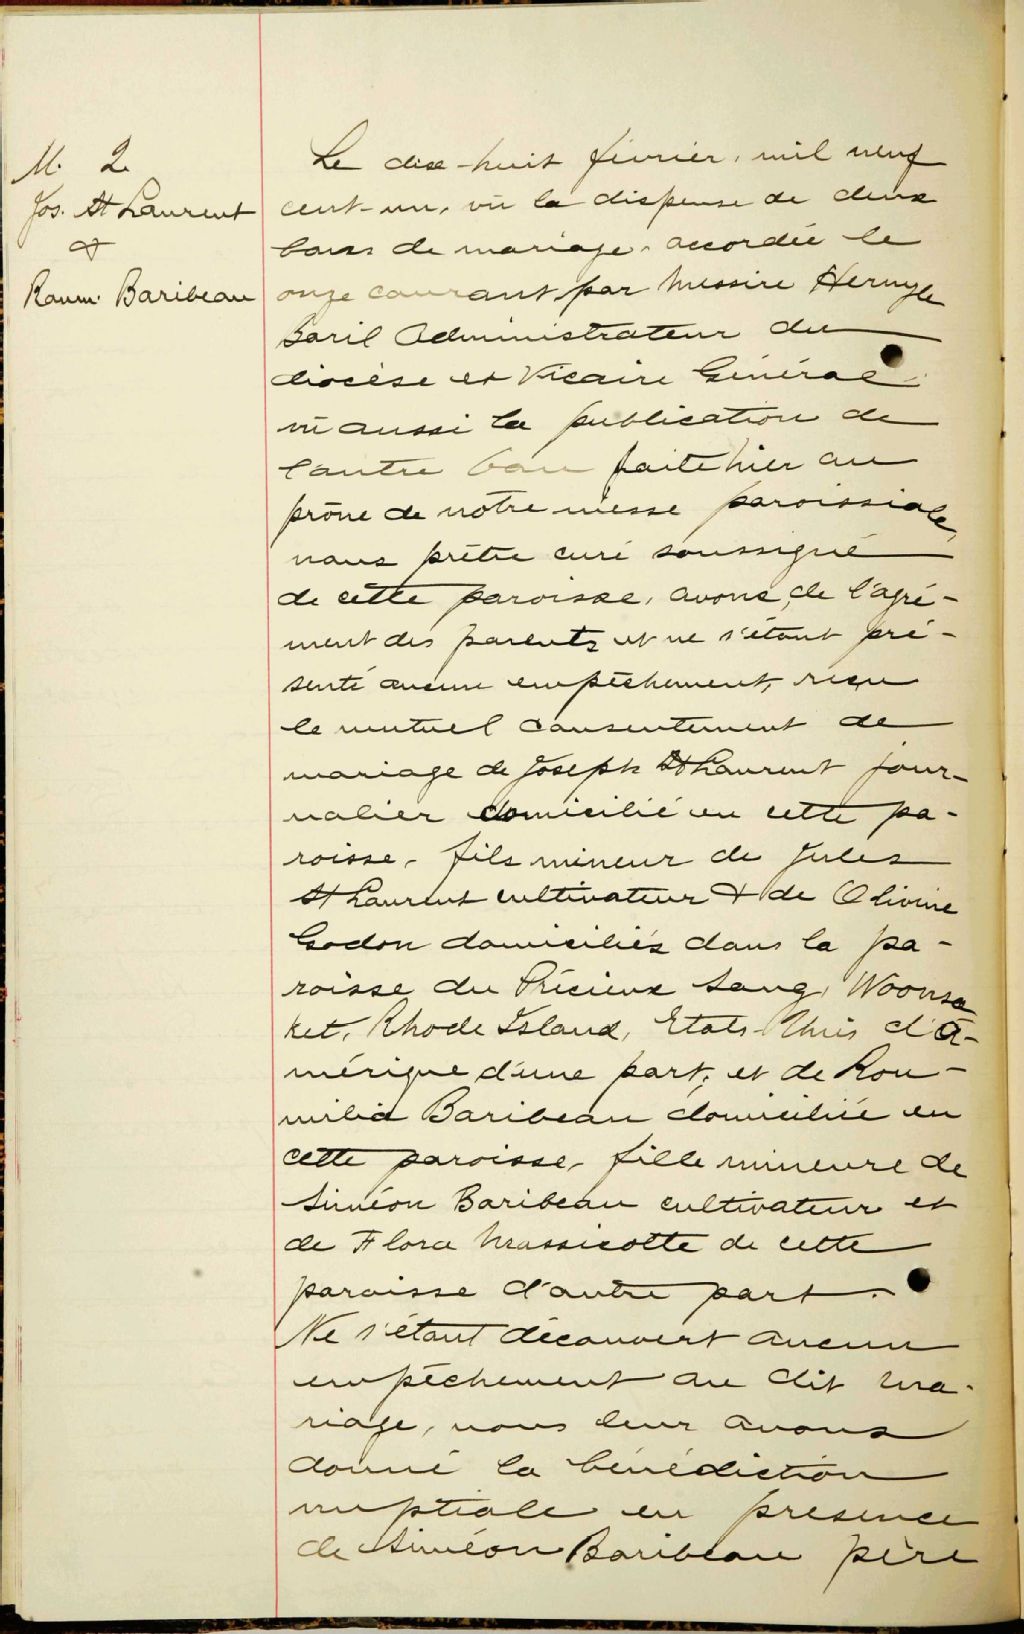 M. 2
Jos. St Laurent
&
Roum. Baribeau
Le dix-huit février, mil neuf
cent-un, vû la dispense de deux
bans de mariage, accordée le
onze courant par Messire Hermyle
Baril Administrateur du
diocèse et Vicaire Général
vû aussi la publication de
l'autre ban faite hier au
prône de notre messe paroissiale,
nous prêtre curé soussigné
de cette paroisse, avons, de l'agré-
ment des parents et ne s'étant pré-
senté aucun empêchement, reçu
le mutuel consentement de
mariage de Joseph St Laurent jour-
nalier domicilié en cette pa-
roisse, fils mineur de Jules
St Laurent cultivateur & de Olivine
Godon domiciliés dans la pa-
roisse du Précieux Sang, Woonso
ket, Rhode Island, Etats-Unis d'A-
mérique d'une part; et de Rou-
milia Baribeau domiciliée en
cette paroisse, fille mineure de
Siméon Baribeau cultivateur et
de Flora Massicotte de cette
paroisse d'autre part.
Ne s'étant découvert aucun
empêchement au dit ma-
riage, nous leur avons
donné la bénédiction
nuptiale en presence
de Siméon Baribeau père